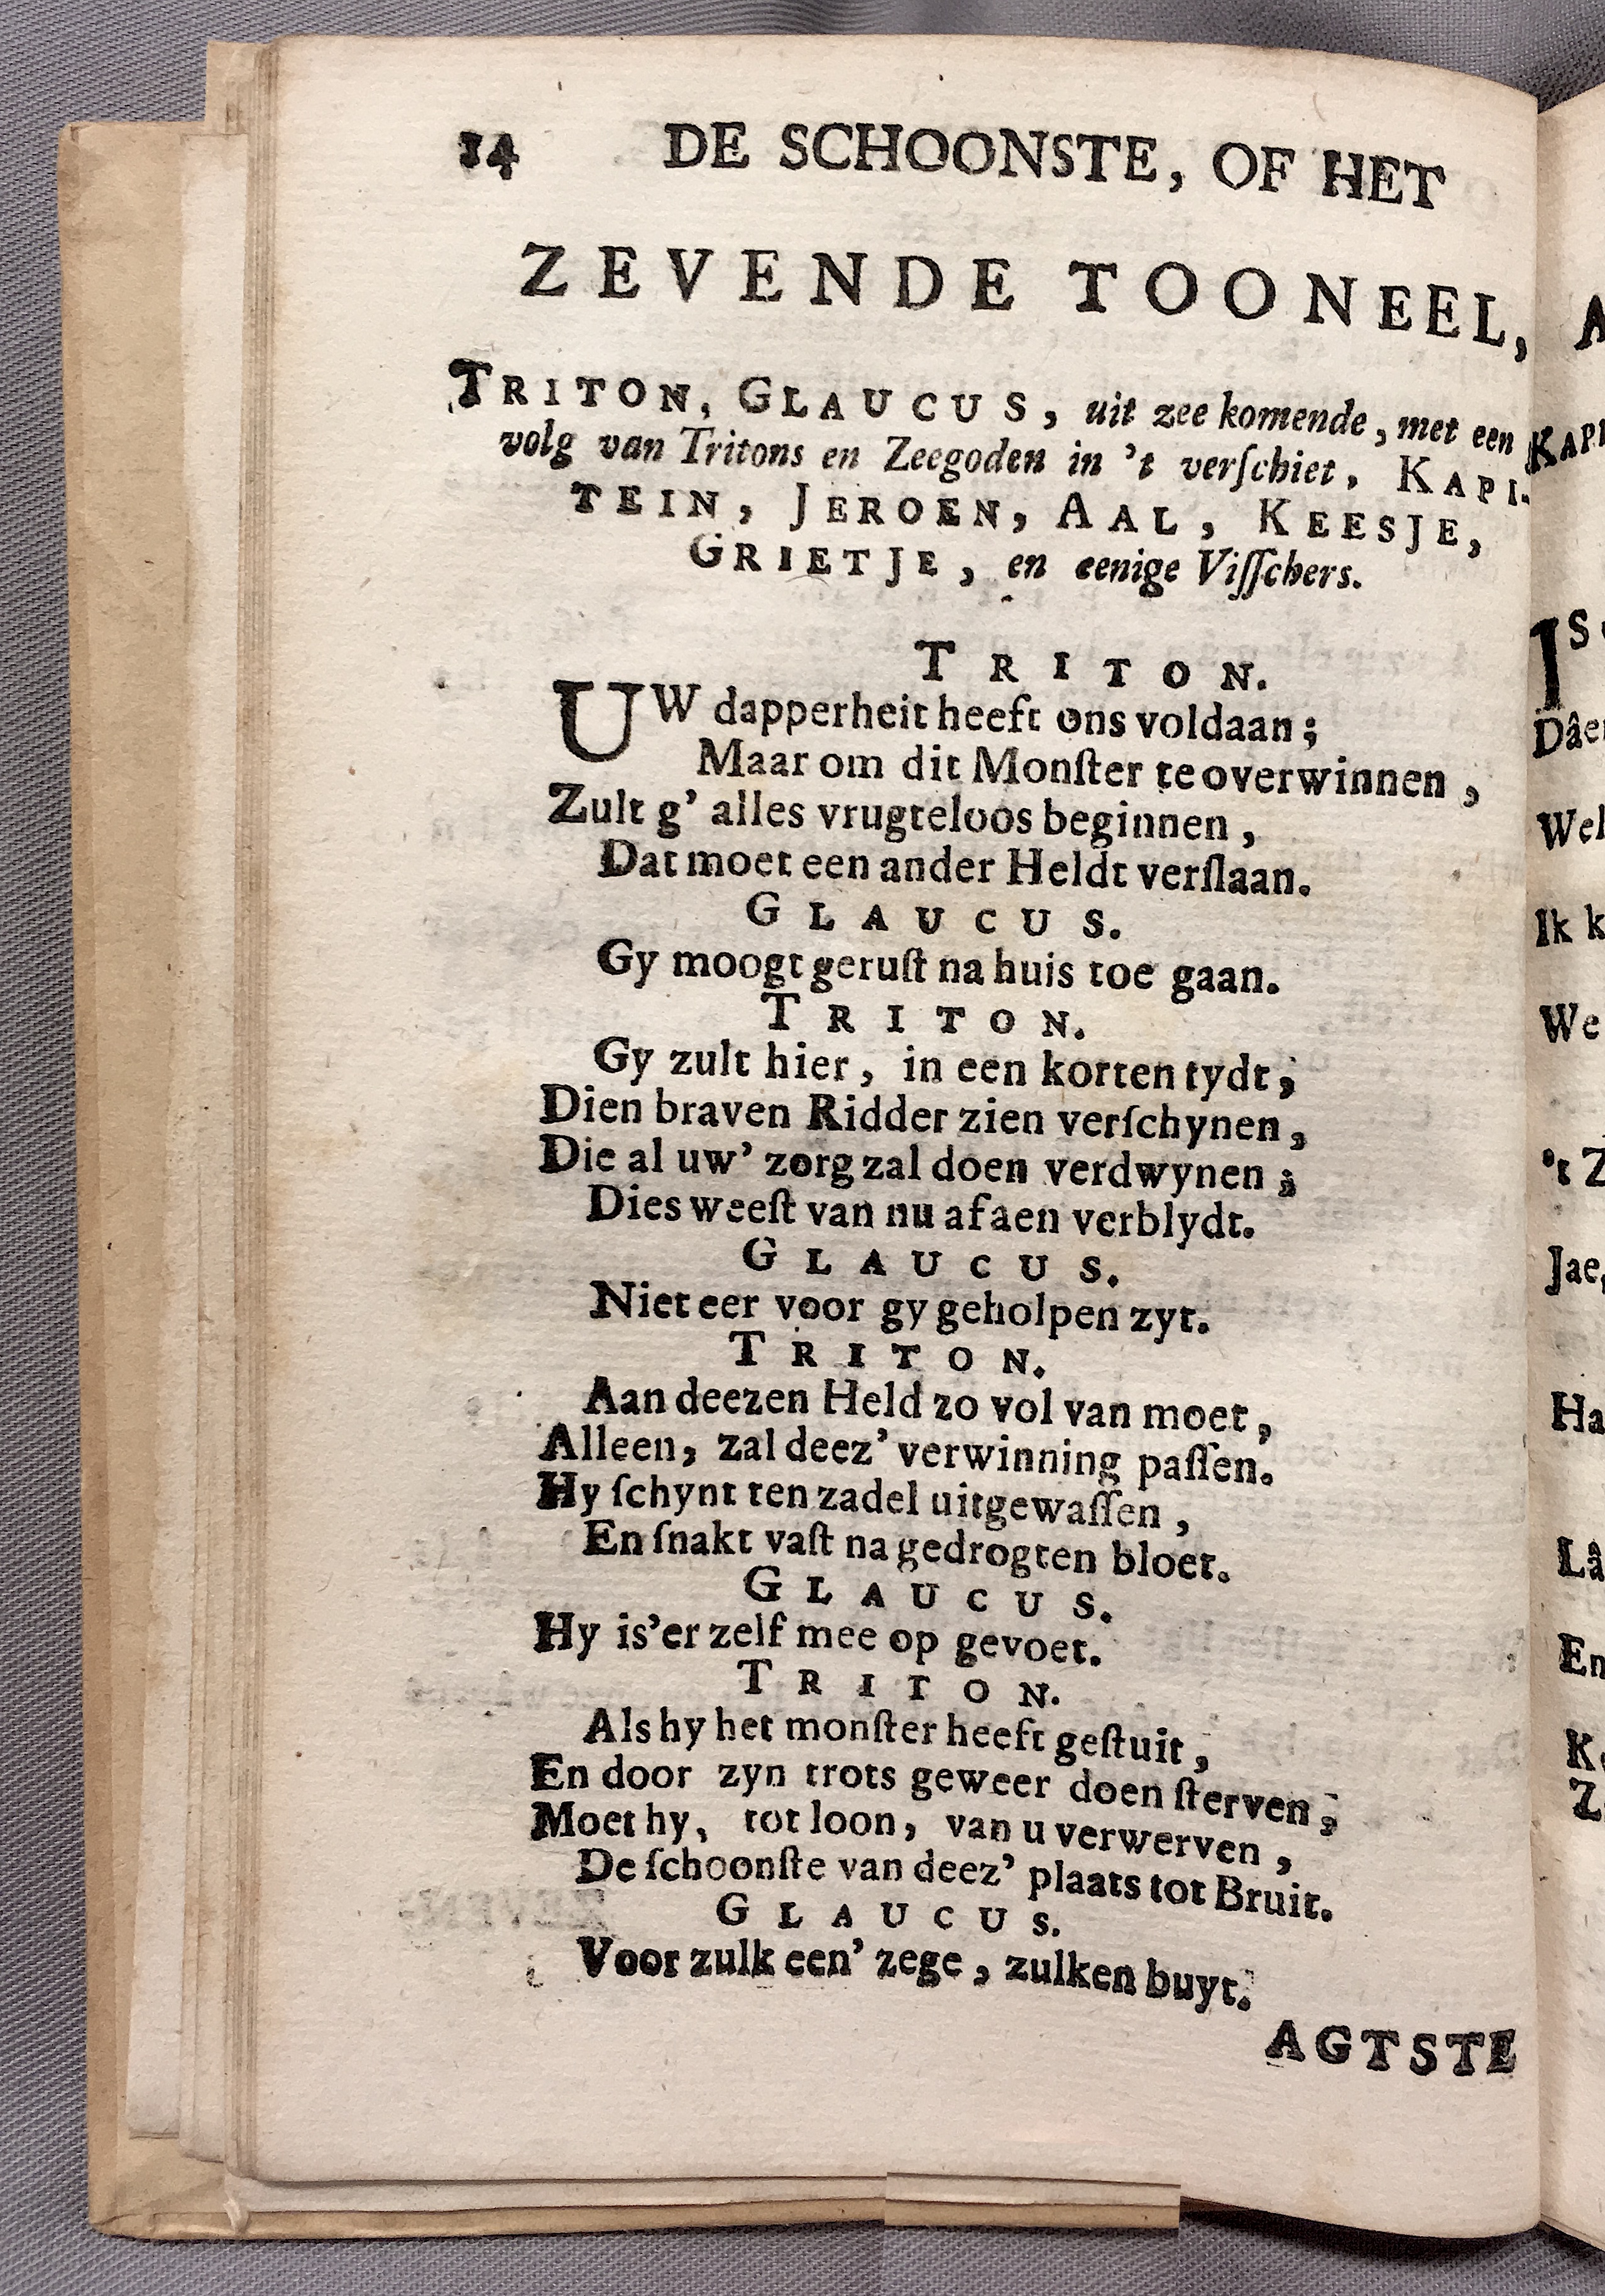 14 DE SCHOONSTE, OF HET
ZEVENDE TOONEEL,
TRITON, GLAUCUS, uit zee komende, met een
volg van Tritons en Zeegoden in 't verſchiet, KAPI-
TEIN, JEROEN, AAL, KEESJE,
GRIETJE, en eenige Viſſchers.
TRITON.
UW dapperheit heeft ons voldaan;
Maar om dit Monſter te overwinnen,
Zult g' alles vrugteloos beginnen,
Dat moet een ander Heldt verſlaan.
GLAUCUS.
Gy moogt geruſt na huis toe gaan.
TRITON.
Gy zult hier, in een korten tydt,
Dien braven Ridder zien verſchynen,
Die al uw' zorg zal doen verdwynen;
Dies weeſt van nu af aen verblydt.
GLAUCUS.
Niet eer voor gy geholpen zyt.
TRITON.
Aan deezen Held zo vol van moet,
Alleen, zal deez' verwinning paſſen.
Hy ſchynt ten zadel uitgewaſſen,
En ſnakt vaſt na gedrogten bloet.
GLAUCUS.
Hy is'er zelf mee op gevoet.
TRITON.
Als hy het monſter heeft geſtuit,
En door zyn trots geweer doen ſterven;
Moet hy, tot loon, van u verwerven,
De ſchoonſte van deez' plaats tot Bruit.
GLAUCUS.
Voor zulk een' zege, zulken buyt.
AGTSTE
KAPI
IS
Dâe
Wel
Ik k
We
't Z
Jae,
Ha
Lâ
En
K
Z